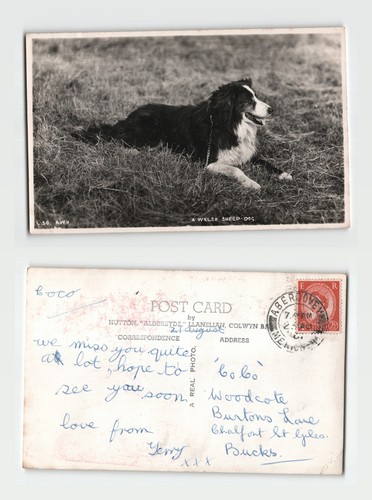 L.56. AWH
A WELSH SHEEP-DOG
Coco
POST CARD
by
HUTTON, "ALDERSYDE," LLANELIAN, COLWYN BAY
21 august
CORRESPONDENCE
ADDRESS
we miss you quite
a lot, hope to
see you soon
love from
Terry
xxx
A REAL PHOTO.
"CoCo"
Woodcote
Burtons Lane
Chalfont St Giles
Bucks.
ABERDOVEY